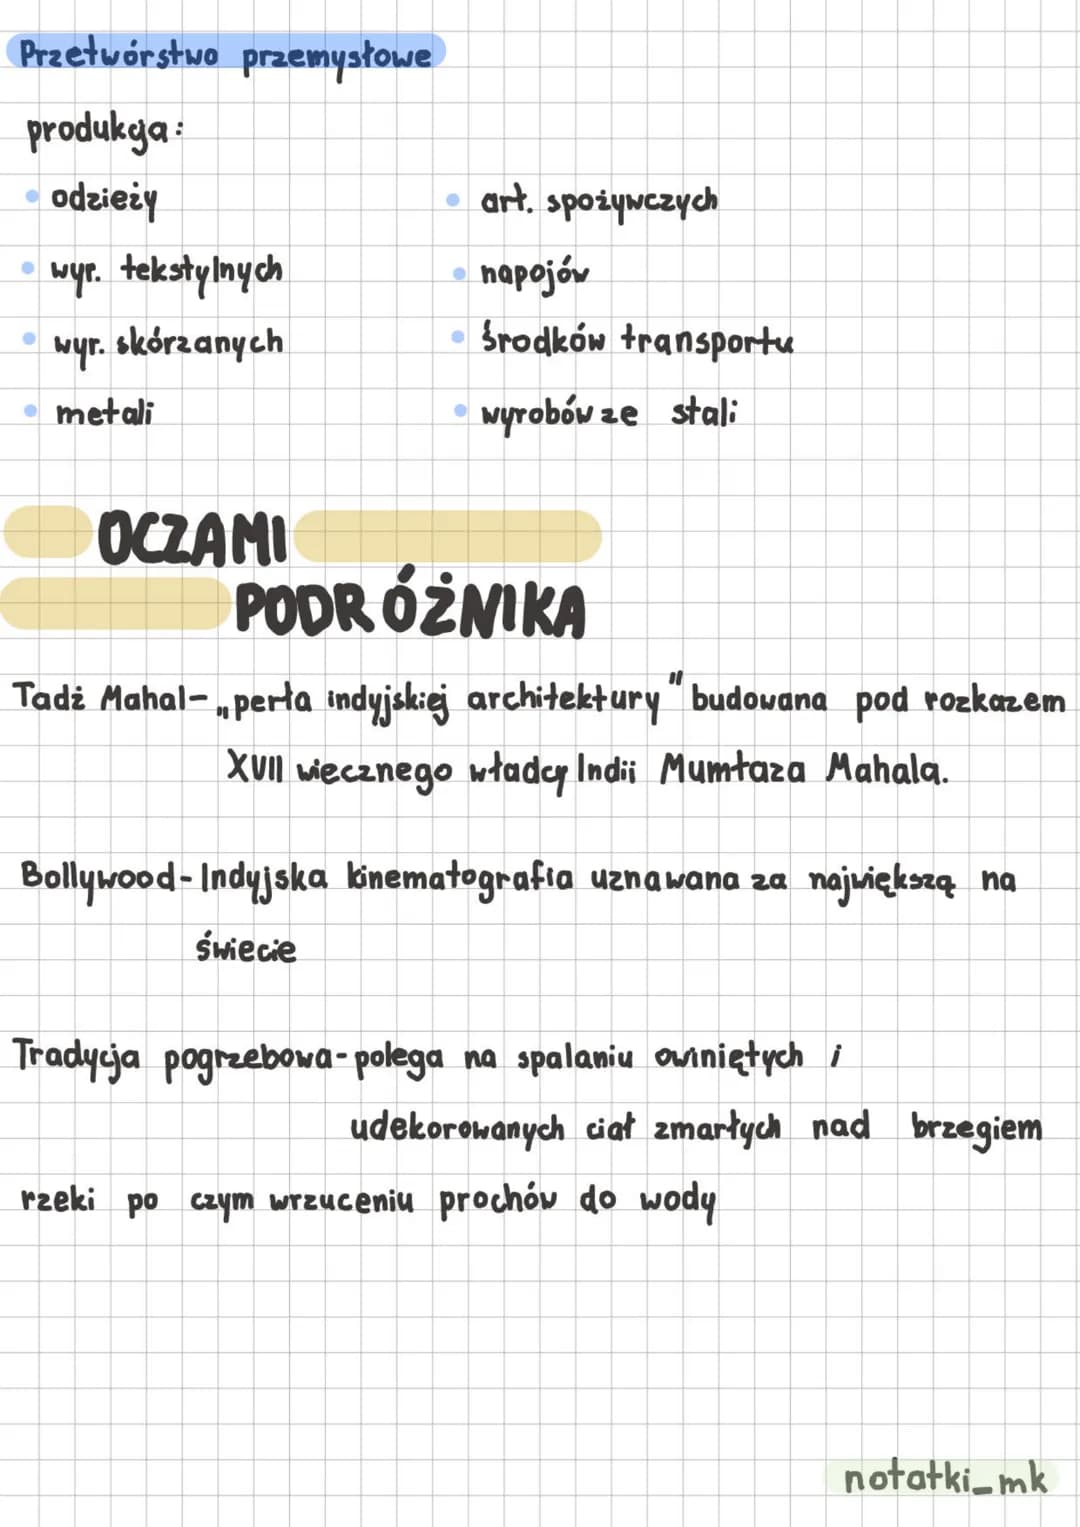 Przetwórstwo przemysłowe
produkcja:
• odzieży
• wyr. tekstylnych
• wyr. skórzanych
• metali
• art. spożywczych
• napojów
• środków transportu
• wyrobów ze stali
OCZAMI
PODRÓŻNIKA
Tadż Mahal- „perła indyjskiej architektury" budowana pod rozkazem
XVII wiecznego władcy Indii Mumtaza Mahala.
Bollywood- Indyjska kinematografia uznawana za największą na
świecie
Tradycja pogrzebowa- polega na spalaniu owiniętych i
udekorowanych ciał zmarłych nad brzegiem
rzeki po czym wrzuceniu prochów do wody
notatki_mk